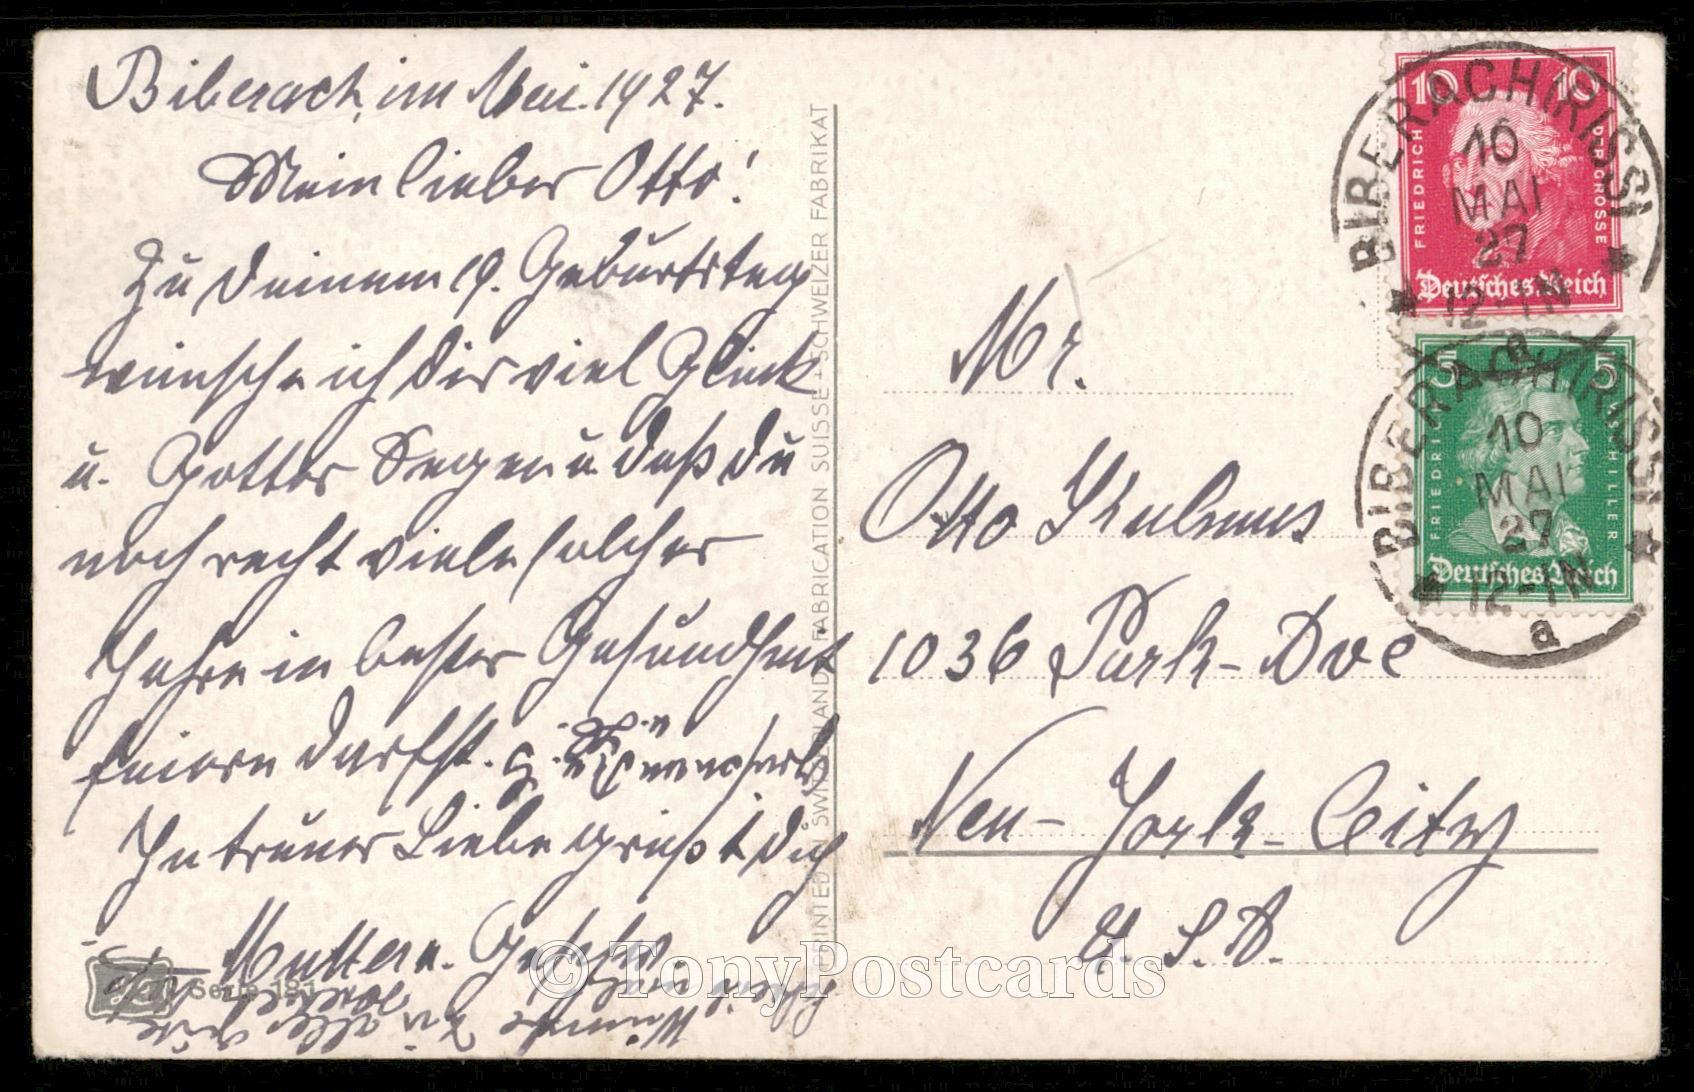 Biberach, im Mai. 1927.
Mein lieber Otto!
Zu Deinem 19. Geburtstag
wünsche ich Dir viel Glück
u. Gottes Segen u. daß Du
noch recht viele solcher
Jahre in bester Gesundheit
feiern darfst.
In treuer Liebe grüßt Dich
Mutter u. Geschw.
Serie 181
SWITZERLAND FABRICATION SUISSE - SCHWEIZER FABRIKAT
Mr.
Otto
1036 Park-Ave
New-York-City
U.S.A.
10 10
FRIEDRICH DER GROSSE
Deutsches Reich
BIBERACH(RISS)
10
MAI
27
12-1N
a
5 5
FRIEDRICH V. SCHILLER
Deutsches Reich
BIBERACH(RISS)
10
MAI
27
12-1N
a
© TonyPostcards